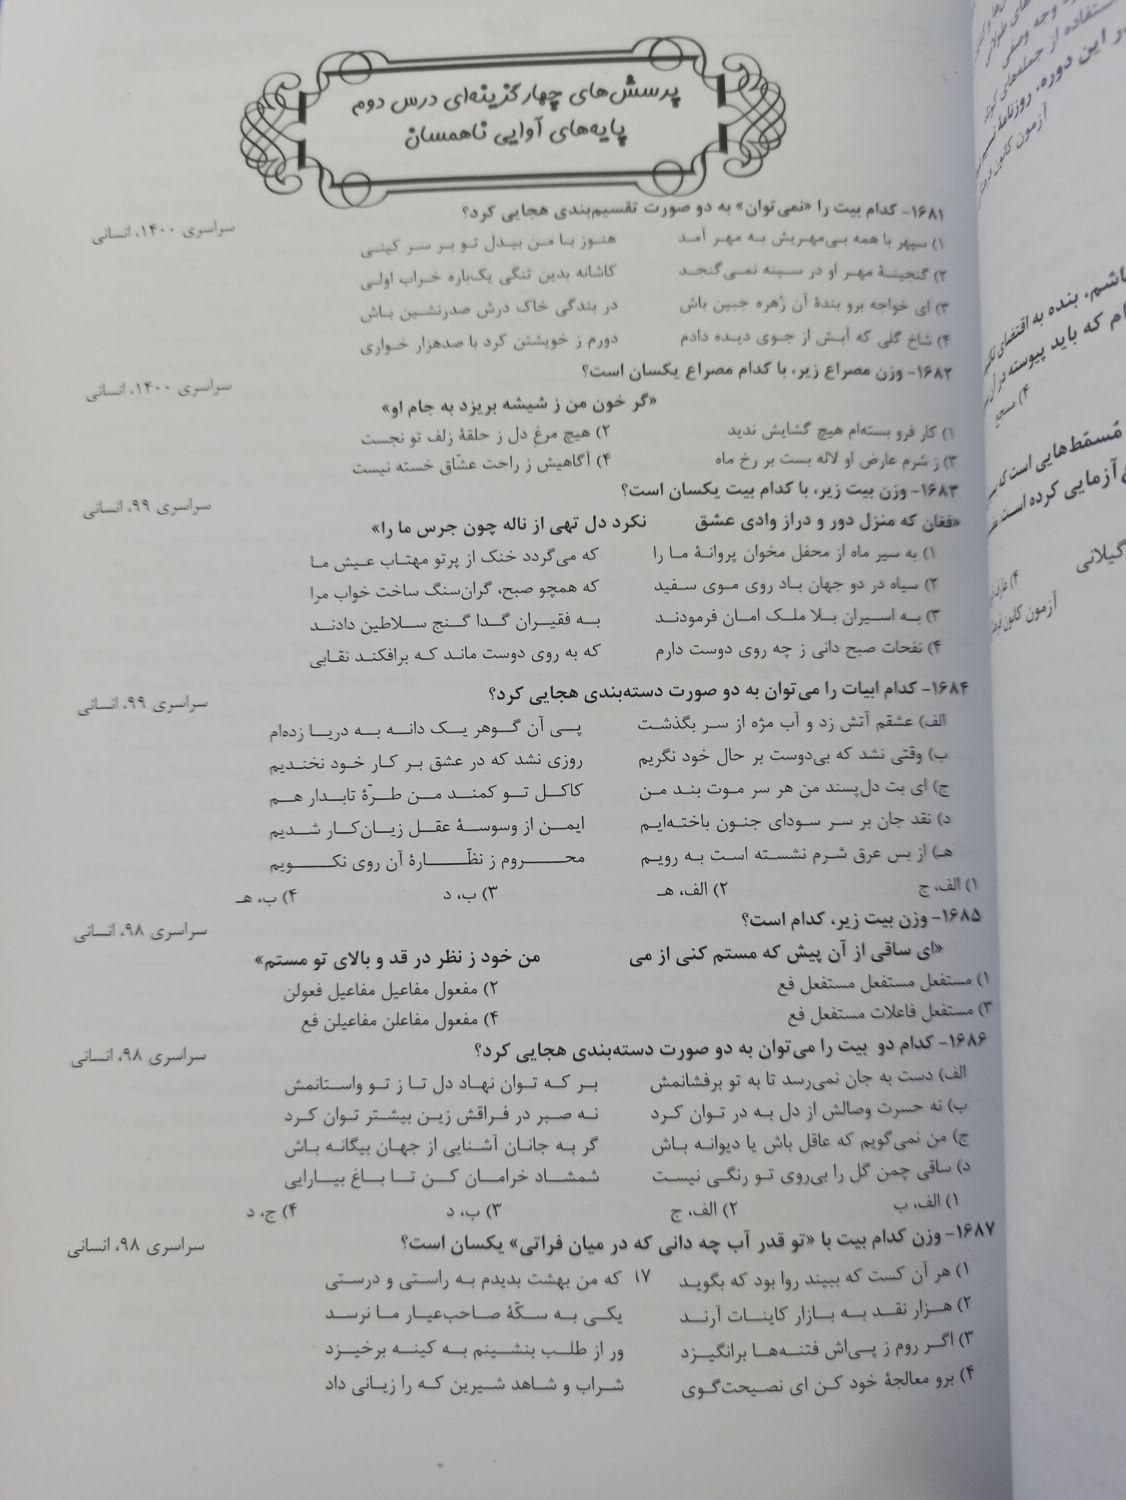 پرسش‌های چهارگزینه‌ای درس دوم
پایه‌های آوایی ناهمسان
۱۶۸۱- کدام بیت را «نمی‌توان» به دو صورت تقسیم‌بندی هجایی کرد؟ سراسری ۱۴۰۰، انسانی
۱) سپهر با همه بی‌مهریش به مهر آمد هنوز با من بیدل تو بر سر کینی
۲) گنجینهٔ مهر او در سینه نمی‌گنجد کاشانه بدین تنگی یک‌باره خراب اولی
۳) ای خواجه برو بندهٔ آن زُهره جبین باش در بندگی خاک درش صدرنشین باش
۴) شاخ گلی که آبش از جوی دیده دادم دورم ز خویشتن کرد با صدهزار خواری
۱۶۸۲- وزن مصراع زیر، با کدام مصراع یکسان است؟ سراسری ۱۴۰۰، انسانی
«گر خون من ز شیشه بریزد به جام او»
۱) کار فرو بسته‌ام هیچ گشایش ندید ۲) هیچ مرغِ دل ز حلقهٔ زلف تو نجست
۳) ز شرم عارض او لاله بست بر رخ ماه ۴) آگاهیش ز راحت عشّاق خسته نیست
۱۶۸۳- وزن بیت زیر، با کدام بیت یکسان است؟ سراسری ۹۹، انسانی
«فغان که منزل دور و دراز وادی عشق نکرد دل تهی از ناله چون جرس ما را»
۱) به سیر ماه از محفل مخوان پروانهٔ ما را که می‌گردد خنک از پرتو مهتاب عیش ما
۲) سیاه در دو جهان باد روی موی سفید که همچو صبح، گران‌سنگ ساخت خواب مرا
۳) به اسیران بلا ملک امان فرمودند به فقیران گدا گنج سلاطین دادند
۴) نفحات صبح دانی ز چه روی دوست دارم که به روی دوست ماند که برافکند نقابی
۱۶۸۴- کدام ابیات را می‌توان به دو صورت دسته‌بندی هجایی کرد؟ سراسری ۹۹، انسانی
الف) عشقم آتش زد و آب مژه از سر بگذشت پی آن گوهر یک دانه به دریا زده‌ام
ب) وقتی نشد که بی‌دوست بر حال خود نگریم روزی نشد که در عشق بر کار خود نخندیم
ج) ای بت دل‌پسند من هر سر موت بند من کاکل تو کمند من طرّهٔ تابدار هم
د) نقد جان بر سر سودای جنون باخته‌ایم ایمن از وسوسهٔ عقل زیان‌کار شدیم
هـ) از بس عرق شرم نشسته است به رویم محروم ز نظّارهٔ آن روی نکویم
۱) الف، ج ۲) الف، هـ ۳) ب، د ۴) ب، هـ
۱۶۸۵- وزن بیت زیر، کدام است؟ سراسری ۹۸، انسانی
«ای ساقی از آن پیش که مستم کنی از می من خود ز نظر در قد و بالای تو مستم»
۱) مستفعل مستفعل مستفعل فع ۲) مفعول مفاعیل مفاعیل فعولن
۳) مستفعل فاعلات مستفعل فع ۴) مفعول مفاعلن مفاعیلن فع
۱۶۸۶- کدام دو بیت را می‌توان به دو صورت دسته‌بندی هجایی کرد؟ سراسری ۹۸، انسانی
الف) دست به جان نمی‌رسد تا به تو برفشانمش بر که توان نهاد دل تا ز تو واستانمش
ب) نه حسرت وصالش از دل به در توان کرد نه صبر در فراقش زین بیشتر توان کرد
ج) من نمی‌گویم که عاقل باش یا دیوانه باش گر به جانان آشنایی از جهان بیگانه باش
د) ساقی چمن گل را بی‌روی تو رنگی نیست شمشاد خرامان کن تا باغ بیارایی
۱) الف، ب ۲) الف، ج ۳) ب، د ۴) ج، د
۱۶۸۷- وزن کدام بیت با «تو قدر آب چه دانی که در میان فراتی» یکسان است؟ سراسری ۹۸، انسانی
۱) هر آن کست که ببیند روا بود که بگوید ۱۷ که من بهشت بدیدم به راستی و درستی
۲) هزار نقد به بازار کاینات آرند یکی به سکّهٔ صاحب‌عیار ما نرسد
۳) اگر روم ز پی‌اش فتنه‌ها برانگیزد ور از طلب بنشینم به کینه برخیزد
۴) برو معالجهٔ خود کن ای نصیحت‌گوی شراب و شاهد شیرین که را زیانی داد
وجه وصفی
استفاده از جمله‌های کوتاه
در این دوره، روزنامهٔ
آزمون کانون
باشم، بنده به اقتضای
ام که باید پیوسته در آن
۴) مسجع
مُسمّط‌هایی است که
آزمایی کرده است
گیلانی
آزمون کانون